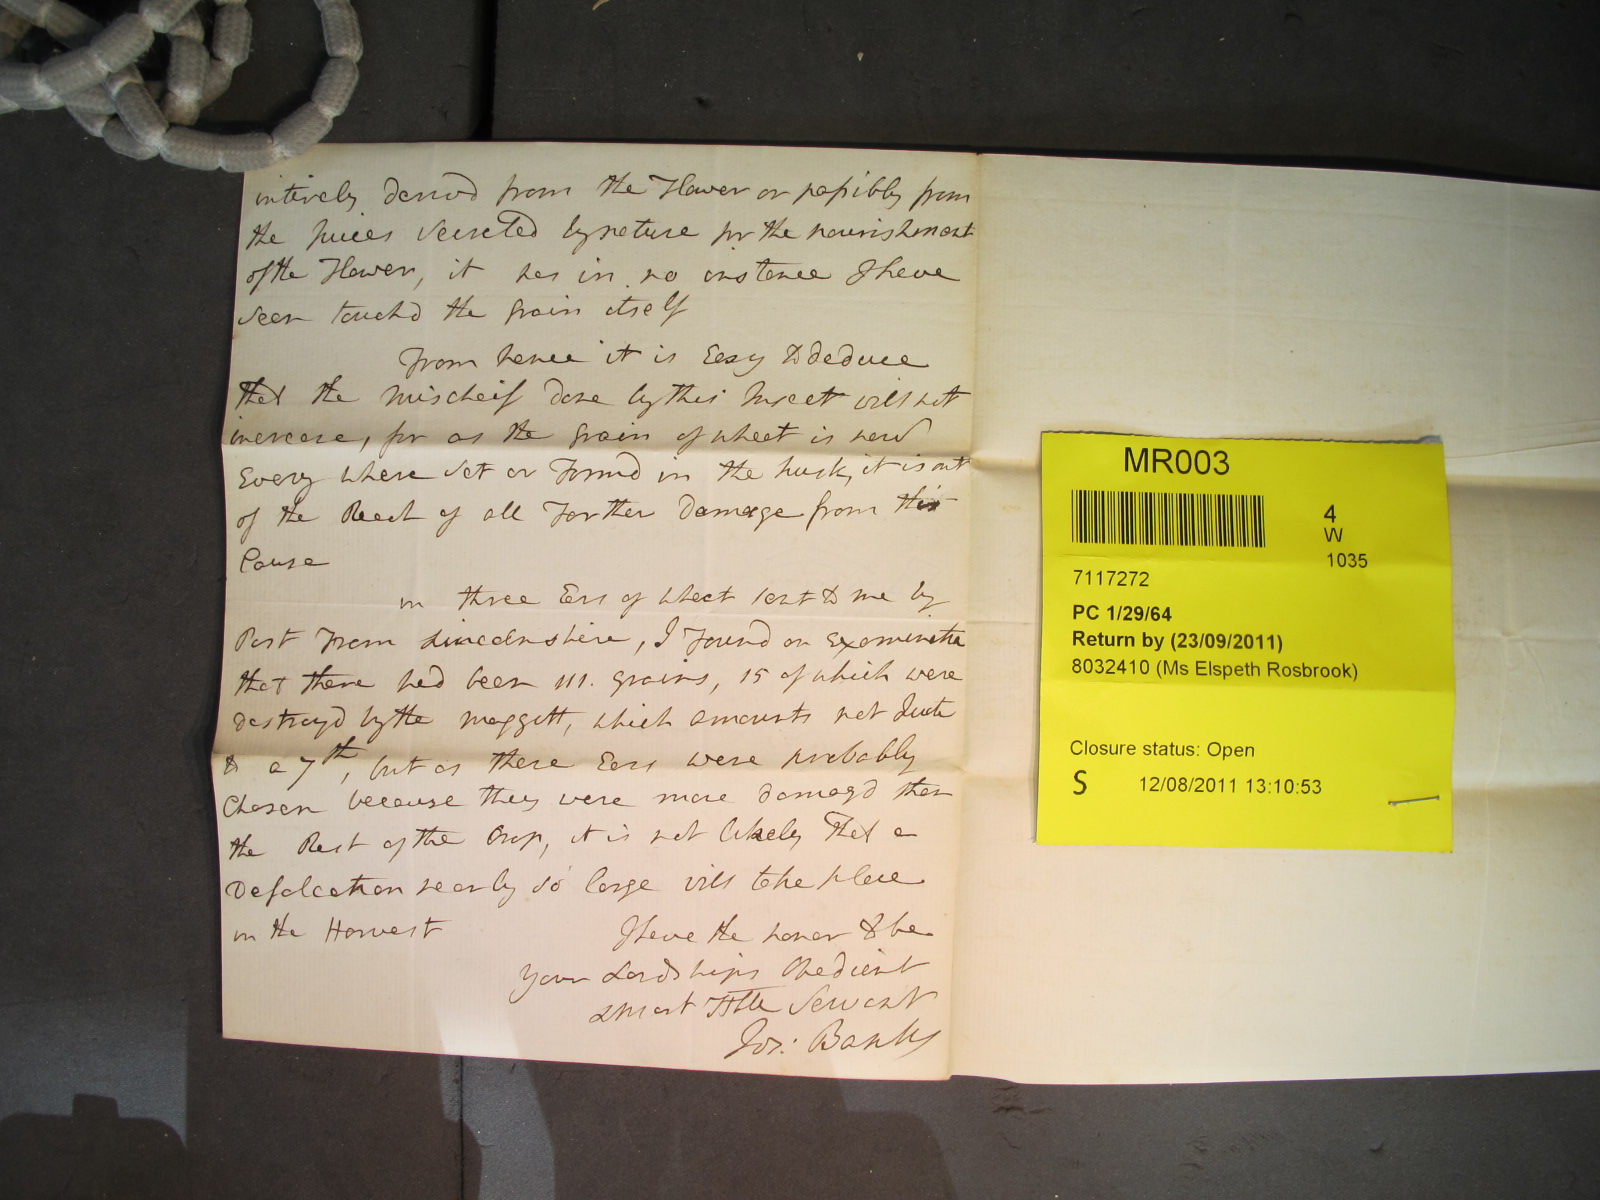 intirely derivd from the Flower or possibly from
the juices secreted by nature for the nourishment
of the Flower, it has in no instance I have
seen touchd the grain itself
From hence it is Easy to deduce
that the Mischeif done by this Insect will not
increase, for as the grain of wheat is now
Every where set or Formd in the husk, it is out
of the Reach of all Farther Damage from this
Cause
in three Ears of wheat sent to me by
Post From Lincolnshire, I Found on Examinatn
that there had been 111. grains, 15 of which were
destroyd by the maggott, which amounts not Quite
to a 7th, but as these Ears were probably
Chosen because they were more damagd than
the Rest of the Crop, it is not likely That a
Defalcation nearly so large will take place
in the Harvest
I have the honor to be
your Lordships Obedient
& most Hble Servant
Jos: Banks
MR003
4
W
1035
7117272
PC 1/29/64
Return by (23/09/2011)
8032410 (Ms Elspeth Rosbrook)
Closure status: Open
S 12/08/2011 13:10:53